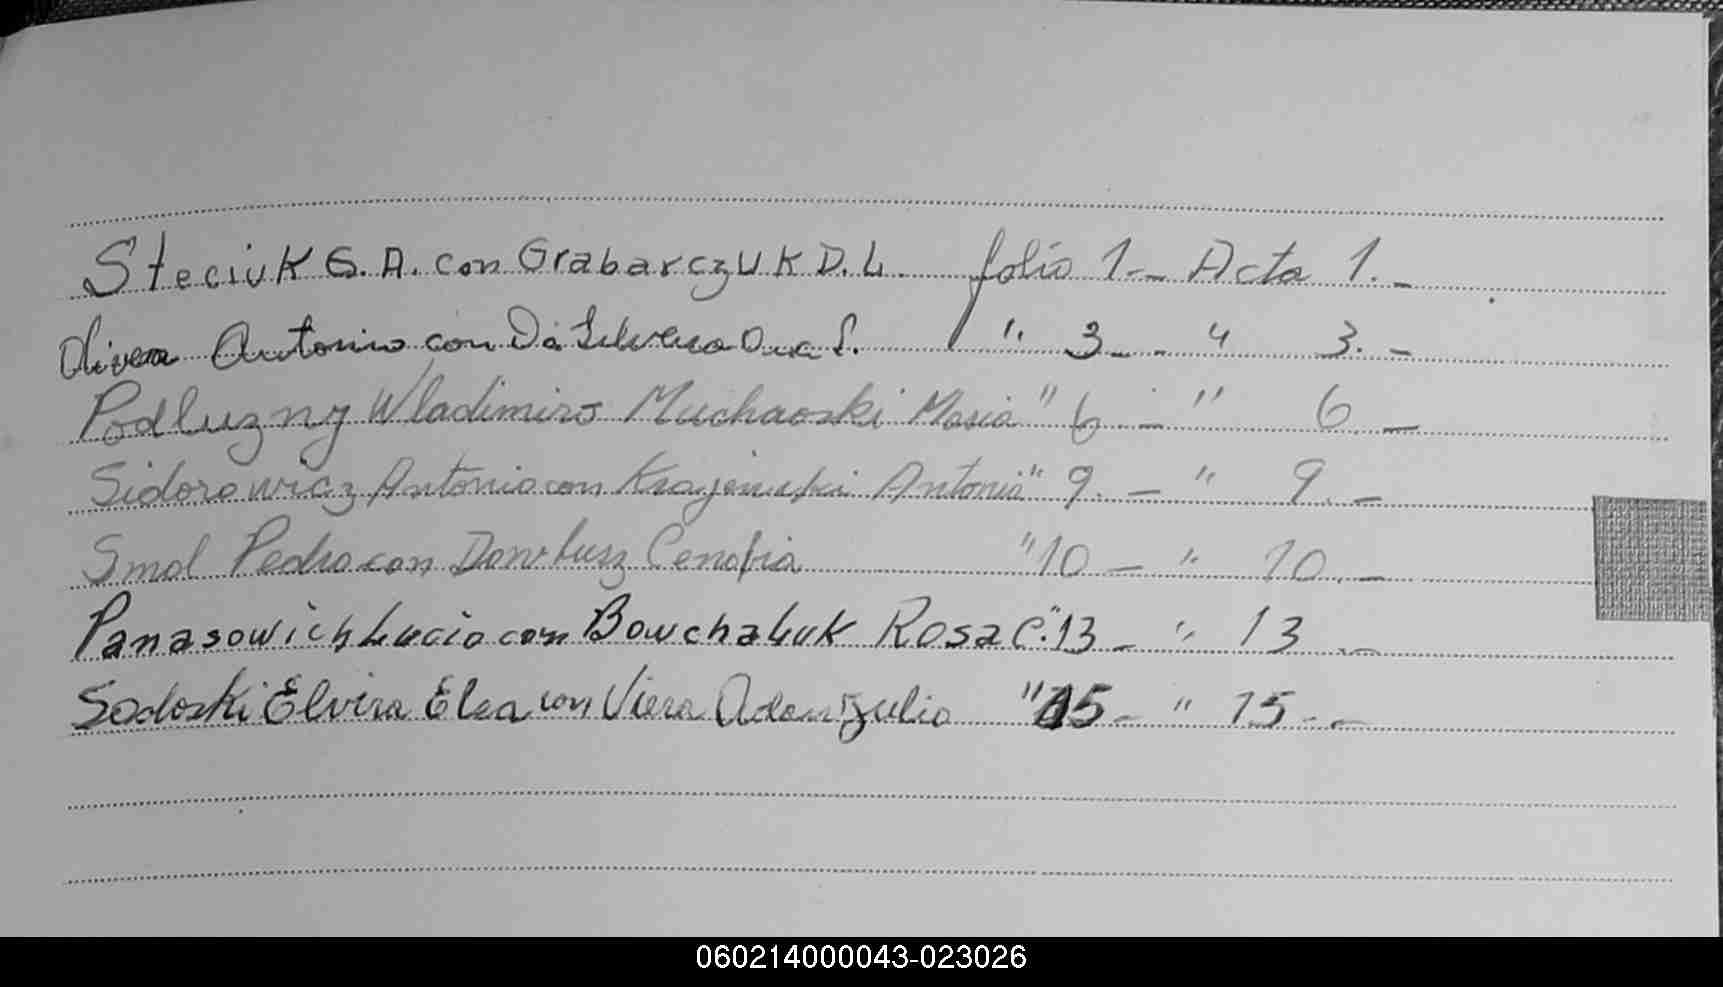 Steciuk G. A. con Grabarczuk D. L. folio 1.- Acta 1.-
Olivera Antonio con Da Silveira S. " 3 - " 3. -
Podluzny Wladimiro Muchaoski Maria " 6 - " 6 -
Sidorowicz Antonio con Krajewski Antonia " 9. - " 9. -
Smol Pedro con Cenobia " 10 - " 10. -
Panasowich Lucio con Bowchaluk Rosa C. " 13 - " 13 -
Sodoski Elvira Elea con Viera Adan Julio " 15 - " 15 - -
060214000043-023026